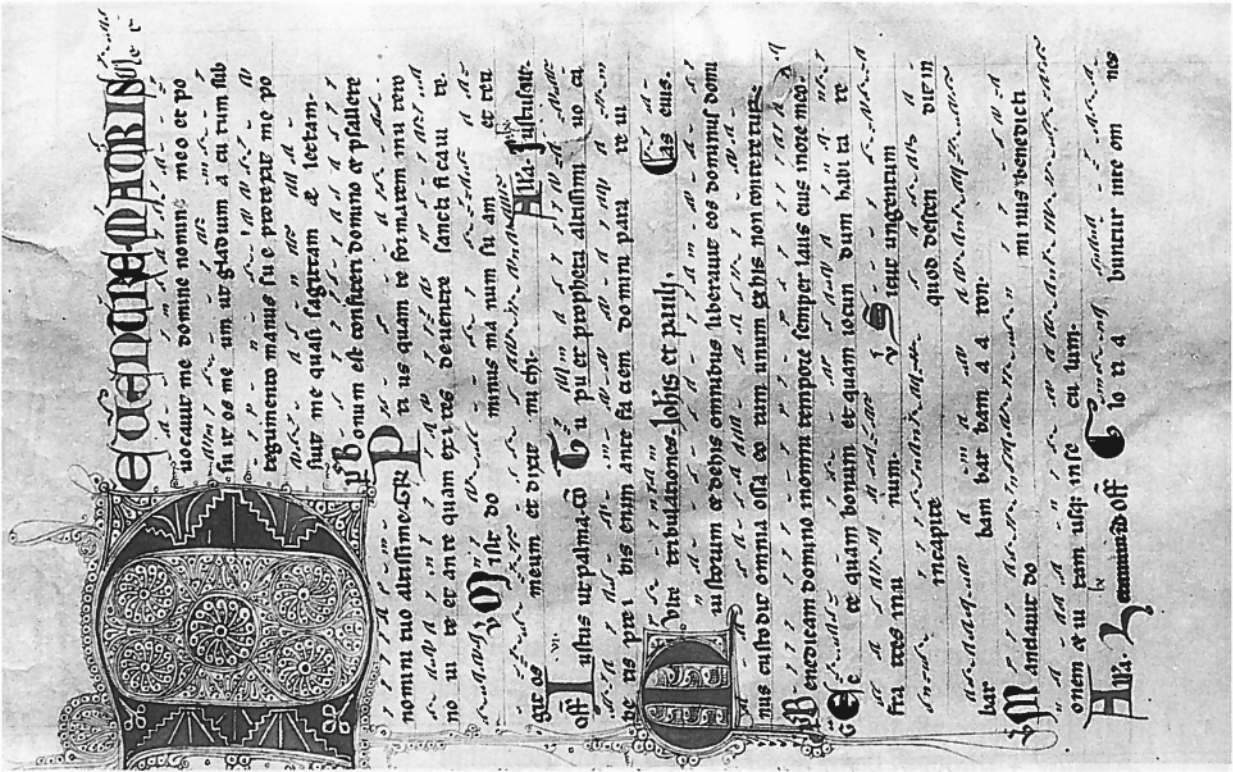 DE UENTRE MATRIS Me e
uocauit me domine nomine meo et po
su it os me um ut gladium a cu tum sub
tegumento manus su e protexit me po
suit me quasi sagittam e lectam.
Bonum est confiteri domino et psallere
nomini tuo altissime. GR Pri us quam te formarem in u tero
no ui te et ante quam exires deuentre sancti fi caui te.
V Misit do minus ma num su am et teti
git os meum et dixit mi chi. Alla. Iustus ut
off Iustus ut palma. co Tu pu er propheta altissimi uo ca
be ris pre i bis enim ante fa ciem domini para re ui
Multe tribulationes. Iohis et pauli. as eius.
iustorum et dehis omnibus liberauit eos dominus domi
nus custodit omnia ossa eo rum unum exhis non conteretur.
Benedicam domino in omni tempore semper laus eius in ore meo.
Ecce quam bonum et quam iocun dum habi ta re
fra tres in u num. V Sicut ungentum
incapite quod descen dit in
bar bam bar bam a a ron.
V Mandauit do minus benedicti
onem & ui tam usq; inse cu lum.
Alla. off Glo ri a buntur in te om nes